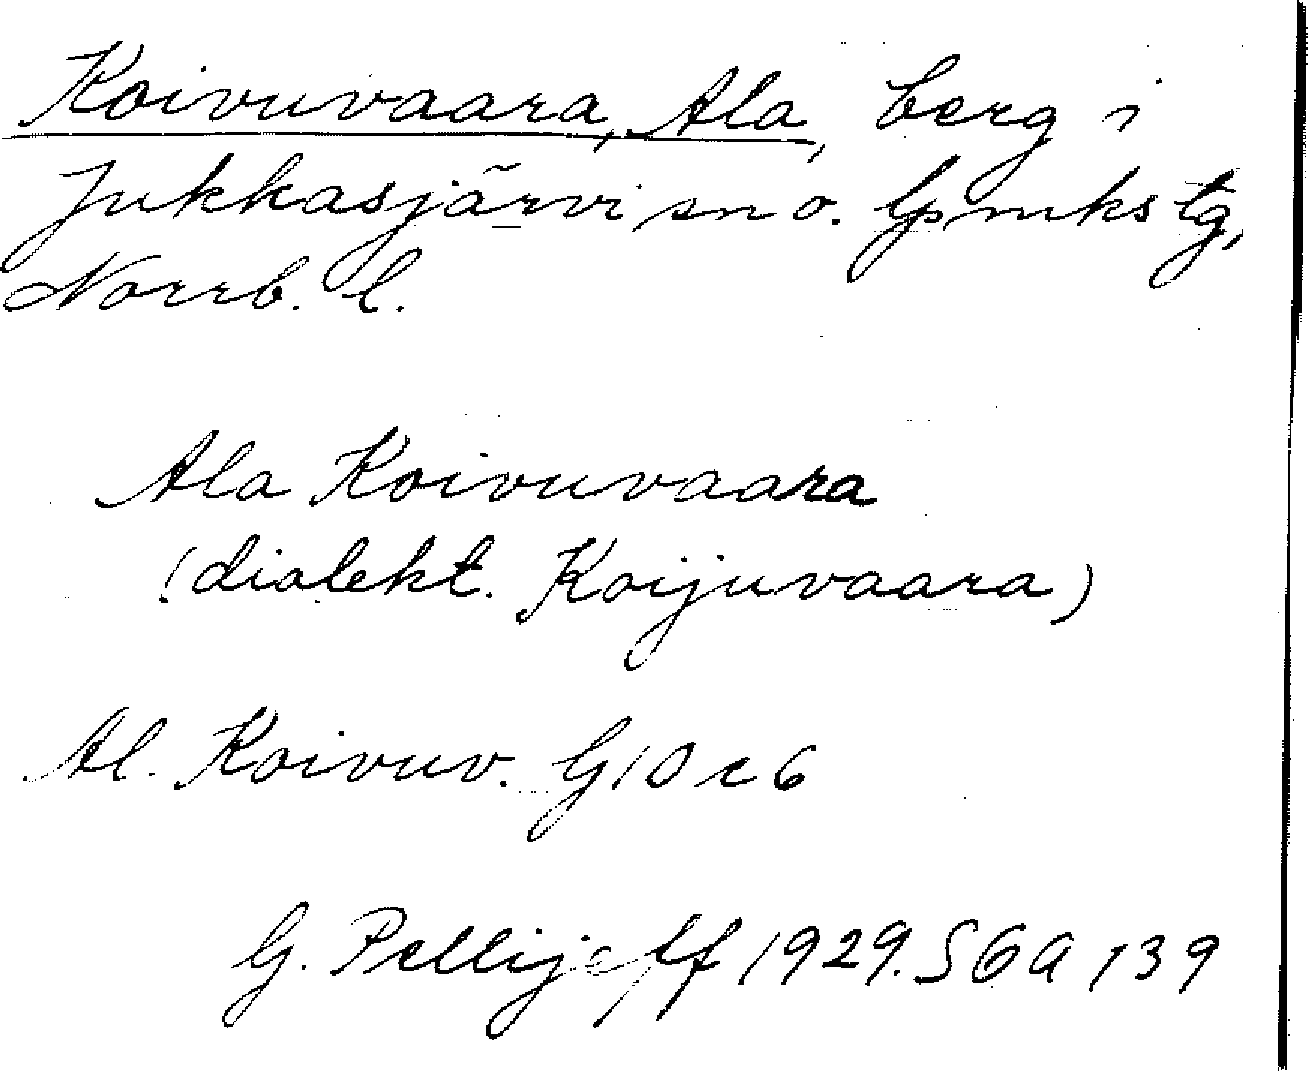 Koivuvaara, Ala, berg i
Jukkasjärvi sn o. lpmks tg,
Norrb. l.
Ala Koivuvaara
(dialekt. Koijuvaara)
Al. Koivuv. G10 c6
G. Pellijeff 1929. SGA 139